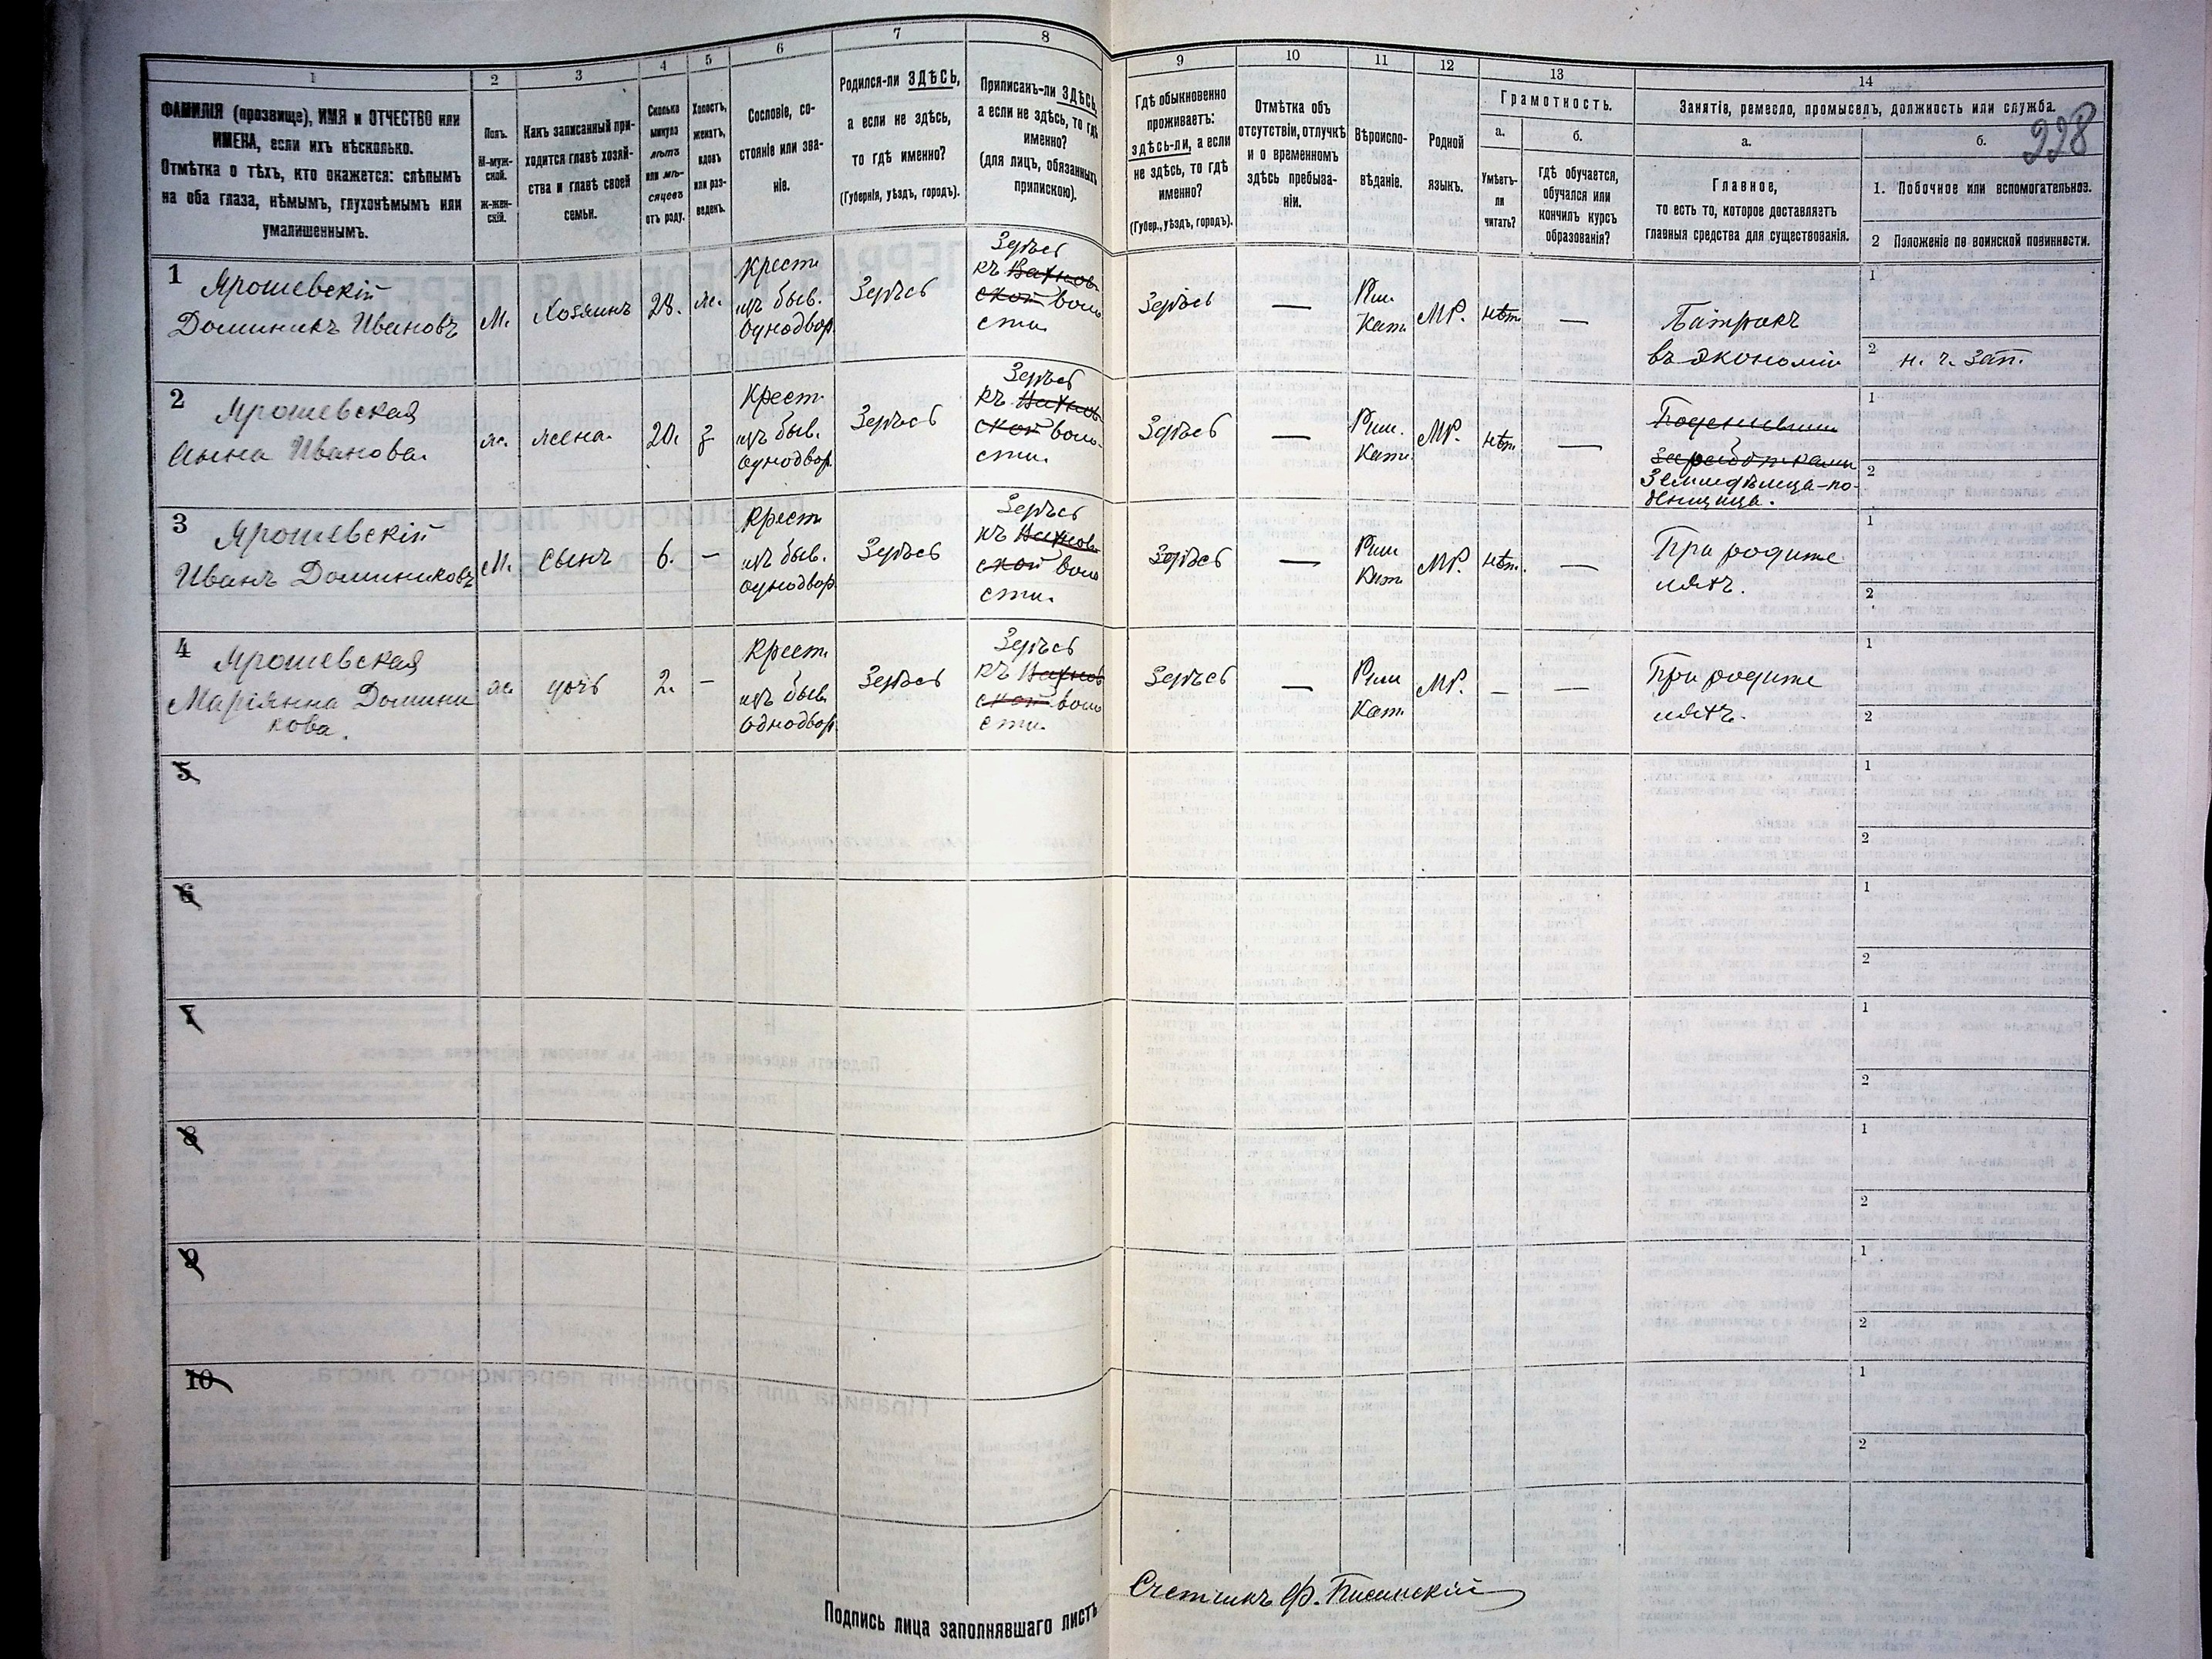 1
2
3
4
5
6
7
8
9
10
11
12
13
14
ФАМИЛІЯ (прозвище), ИМЯ и ОТЧЕСТВО или
ИМЕНА, если ихъ нѣсколько.
Отмѣтка о тѣхъ, кто окажется: слѣпымъ
на оба глаза, нѣмымъ, глухонѣмымъ или
умалишеннымъ.
Полъ.
М-муж-
ской.
ж-жен-
скій.
Какъ записанный при-
ходится главѣ хозяй-
ства и главѣ своей
семьи.
Сколько
минуло
лѣтъ
или мѣ-
сяцевъ
отъ роду.
Холостъ,
женатъ,
вдовъ
или раз-
веденъ.
Сословіе, со-
стояніе или зва-
ніе.
Родился-ли ЗДѢСЬ,
а если не здѣсь,
то гдѣ именно?
(Губернія, уѣздъ, городъ).
Приписанъ-ли ЗДѢСЬ,
а если не здѣсь, то гдѣ
именно?
(для лицъ, обязанныхъ
припискою).
Гдѣ обыкновенно
проживаетъ:
здѣсь-ли, а если
не здѣсь, то гдѣ
именно?
(Губер., уѣздъ, городъ).
Отмѣтка объ
отсутствіи, отлучкѣ
и о временномъ
здѣсь пребыва-
ніи.
Вѣроиспо-
вѣданіе.
Родной
языкъ.
Грамотность.
а.
Умѣетъ-
ли
читать?
б.
гдѣ обучается,
обучался или
кончилъ курсъ
образованія?
Занятіе, ремесло, промыселъ, должность или служба.
228
а.
Главное,
то есть то, которое доставляетъ
главныя средства для существованія.
б.
1. Побочное или вспомогательное.
2 Положеніе по воинской повинности.
1
Ярошевскій
Доминикъ Ивановъ
М.
Хозяинъ
28.
ж.
Крест.
изъ быв.
однодвор.
Здѣсь
Здѣсь
къ Вахнов-
ской воло
сти.
Здѣсь
—
Рим.
Кат.
МР.
нѣт.
—
Батракъ
въ экономіи
1
2 н. ч. зап.
2
Ярошевская
Анна Иванова.
ж.
жена.
20.
з.
Крест.
изъ быв.
однодвор.
Здѣсь
Здѣсь
къ Вахнов
ской воло-
сти.
Здѣсь
—
Рим.
Кат.
МР.
нѣт.
—
заработками
Земледѣлица-по-
денщица.
1
2
3
Ярошевскій
Иванъ Доминиковъ
М.
Сынъ
6.
–
Крест.
изъ быв.
однодвор.
Здѣсь
Здѣсь
къ Вахнов
ской воло
сти.
Здѣсь
—
Рим
Кат
МР.
нѣт.
—
При родите
ляхъ.
1
2
4
Ярошевская
Маріянна Домини
кова.
ж.
дочь
2.
–
Крест.
изъ быв.
однодвор.
Здѣсь
Здѣсь
къ Вахнов
ской воло
сти.
Здѣсь
—
Рим
Кат.
МР.
–
—
При родите
ляхъ.
1
2
5
1
2
6
1
2
7
1
2
8
1
2
9
1
2
10
1
2
Подпись лица заполнявшаго листъ
Счетчикъ Ф.